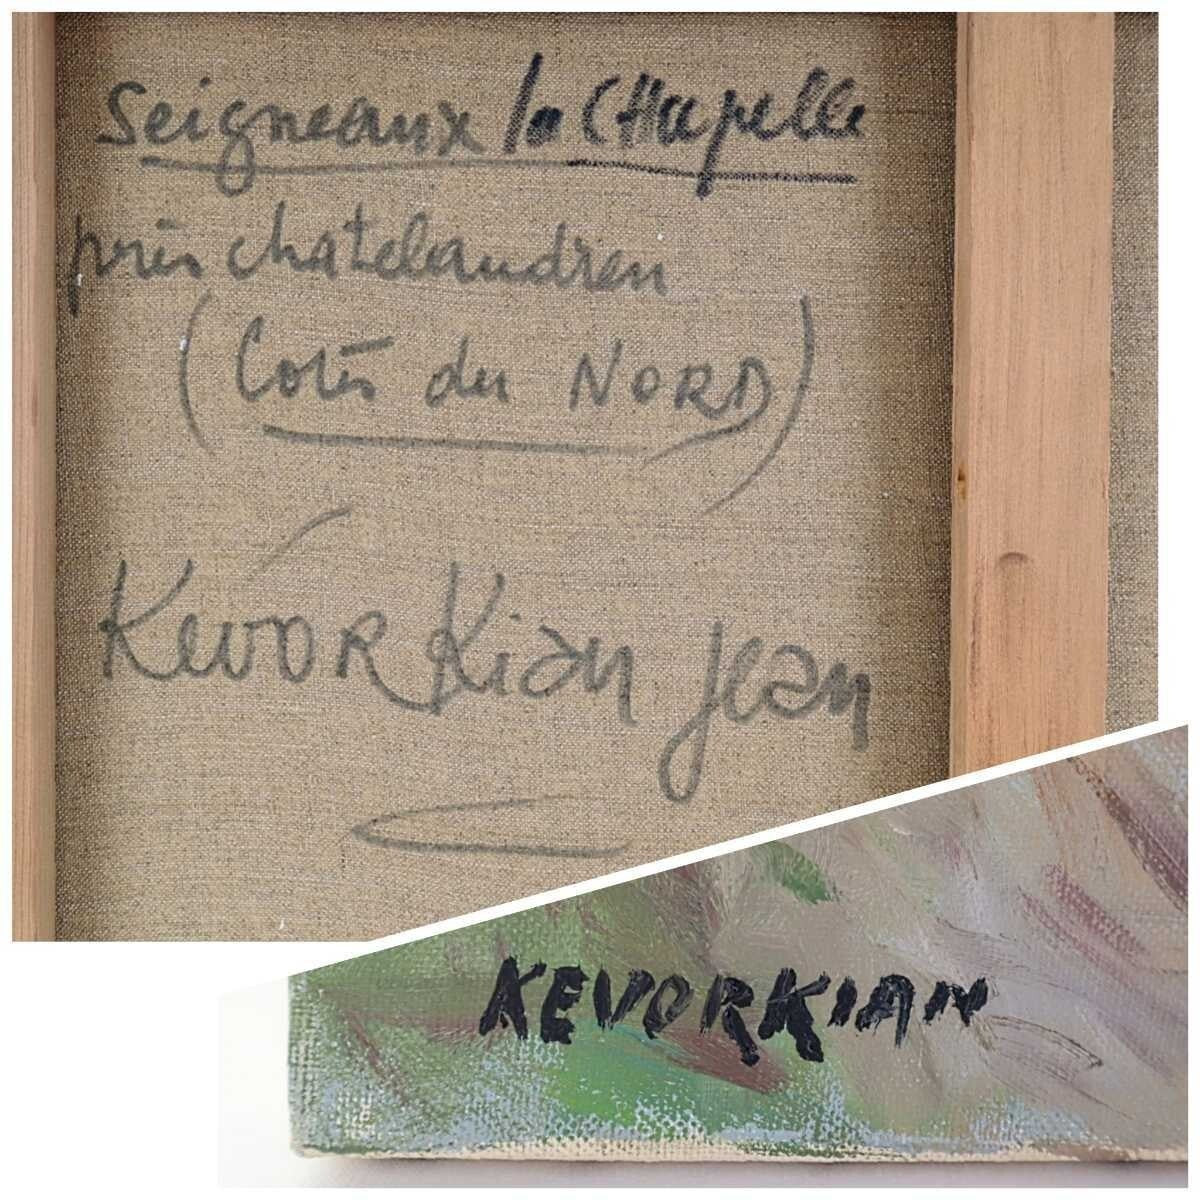 Seigneaux la CHapelle
près chatelaudren
(Cotes du NORD)
KévORKian jean
KEVORKIAN